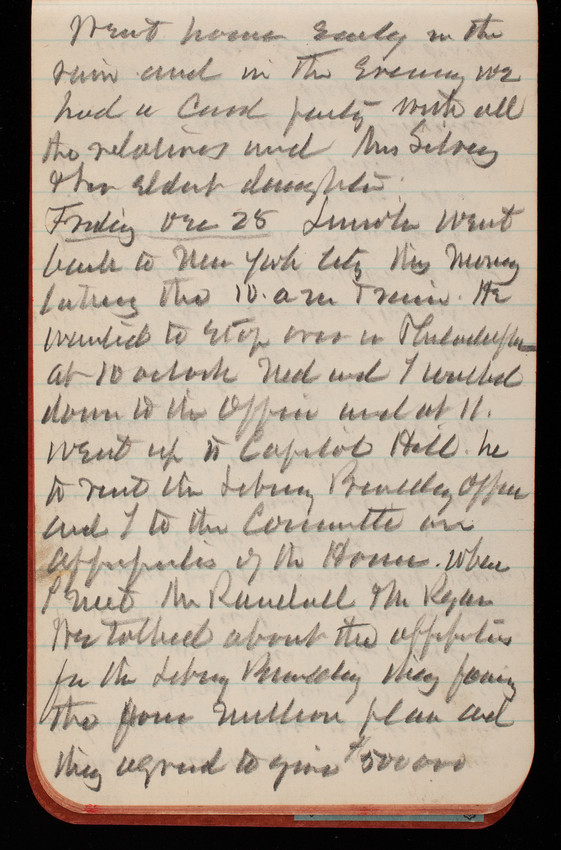 Went home Early in the
rain and in the Evening we
had a Card party with all
the relatives and Mrs
& her Eldest daughter.
Friday Dec 28 Lincoln went
back to New York City this morning
taking the 10. a m Train. He
wanted to stop over in Philadelphia
at 10 oclock Ned and I walked
down to the Office and at 11.
went up to Capitol Hill. he
to the Library Building Office
and I to the Committe on
of the House. When
I met Mr Randall & Mr Ryan
We talked about the
for the Library Building they
the four million plan and
they agreed to give $500000